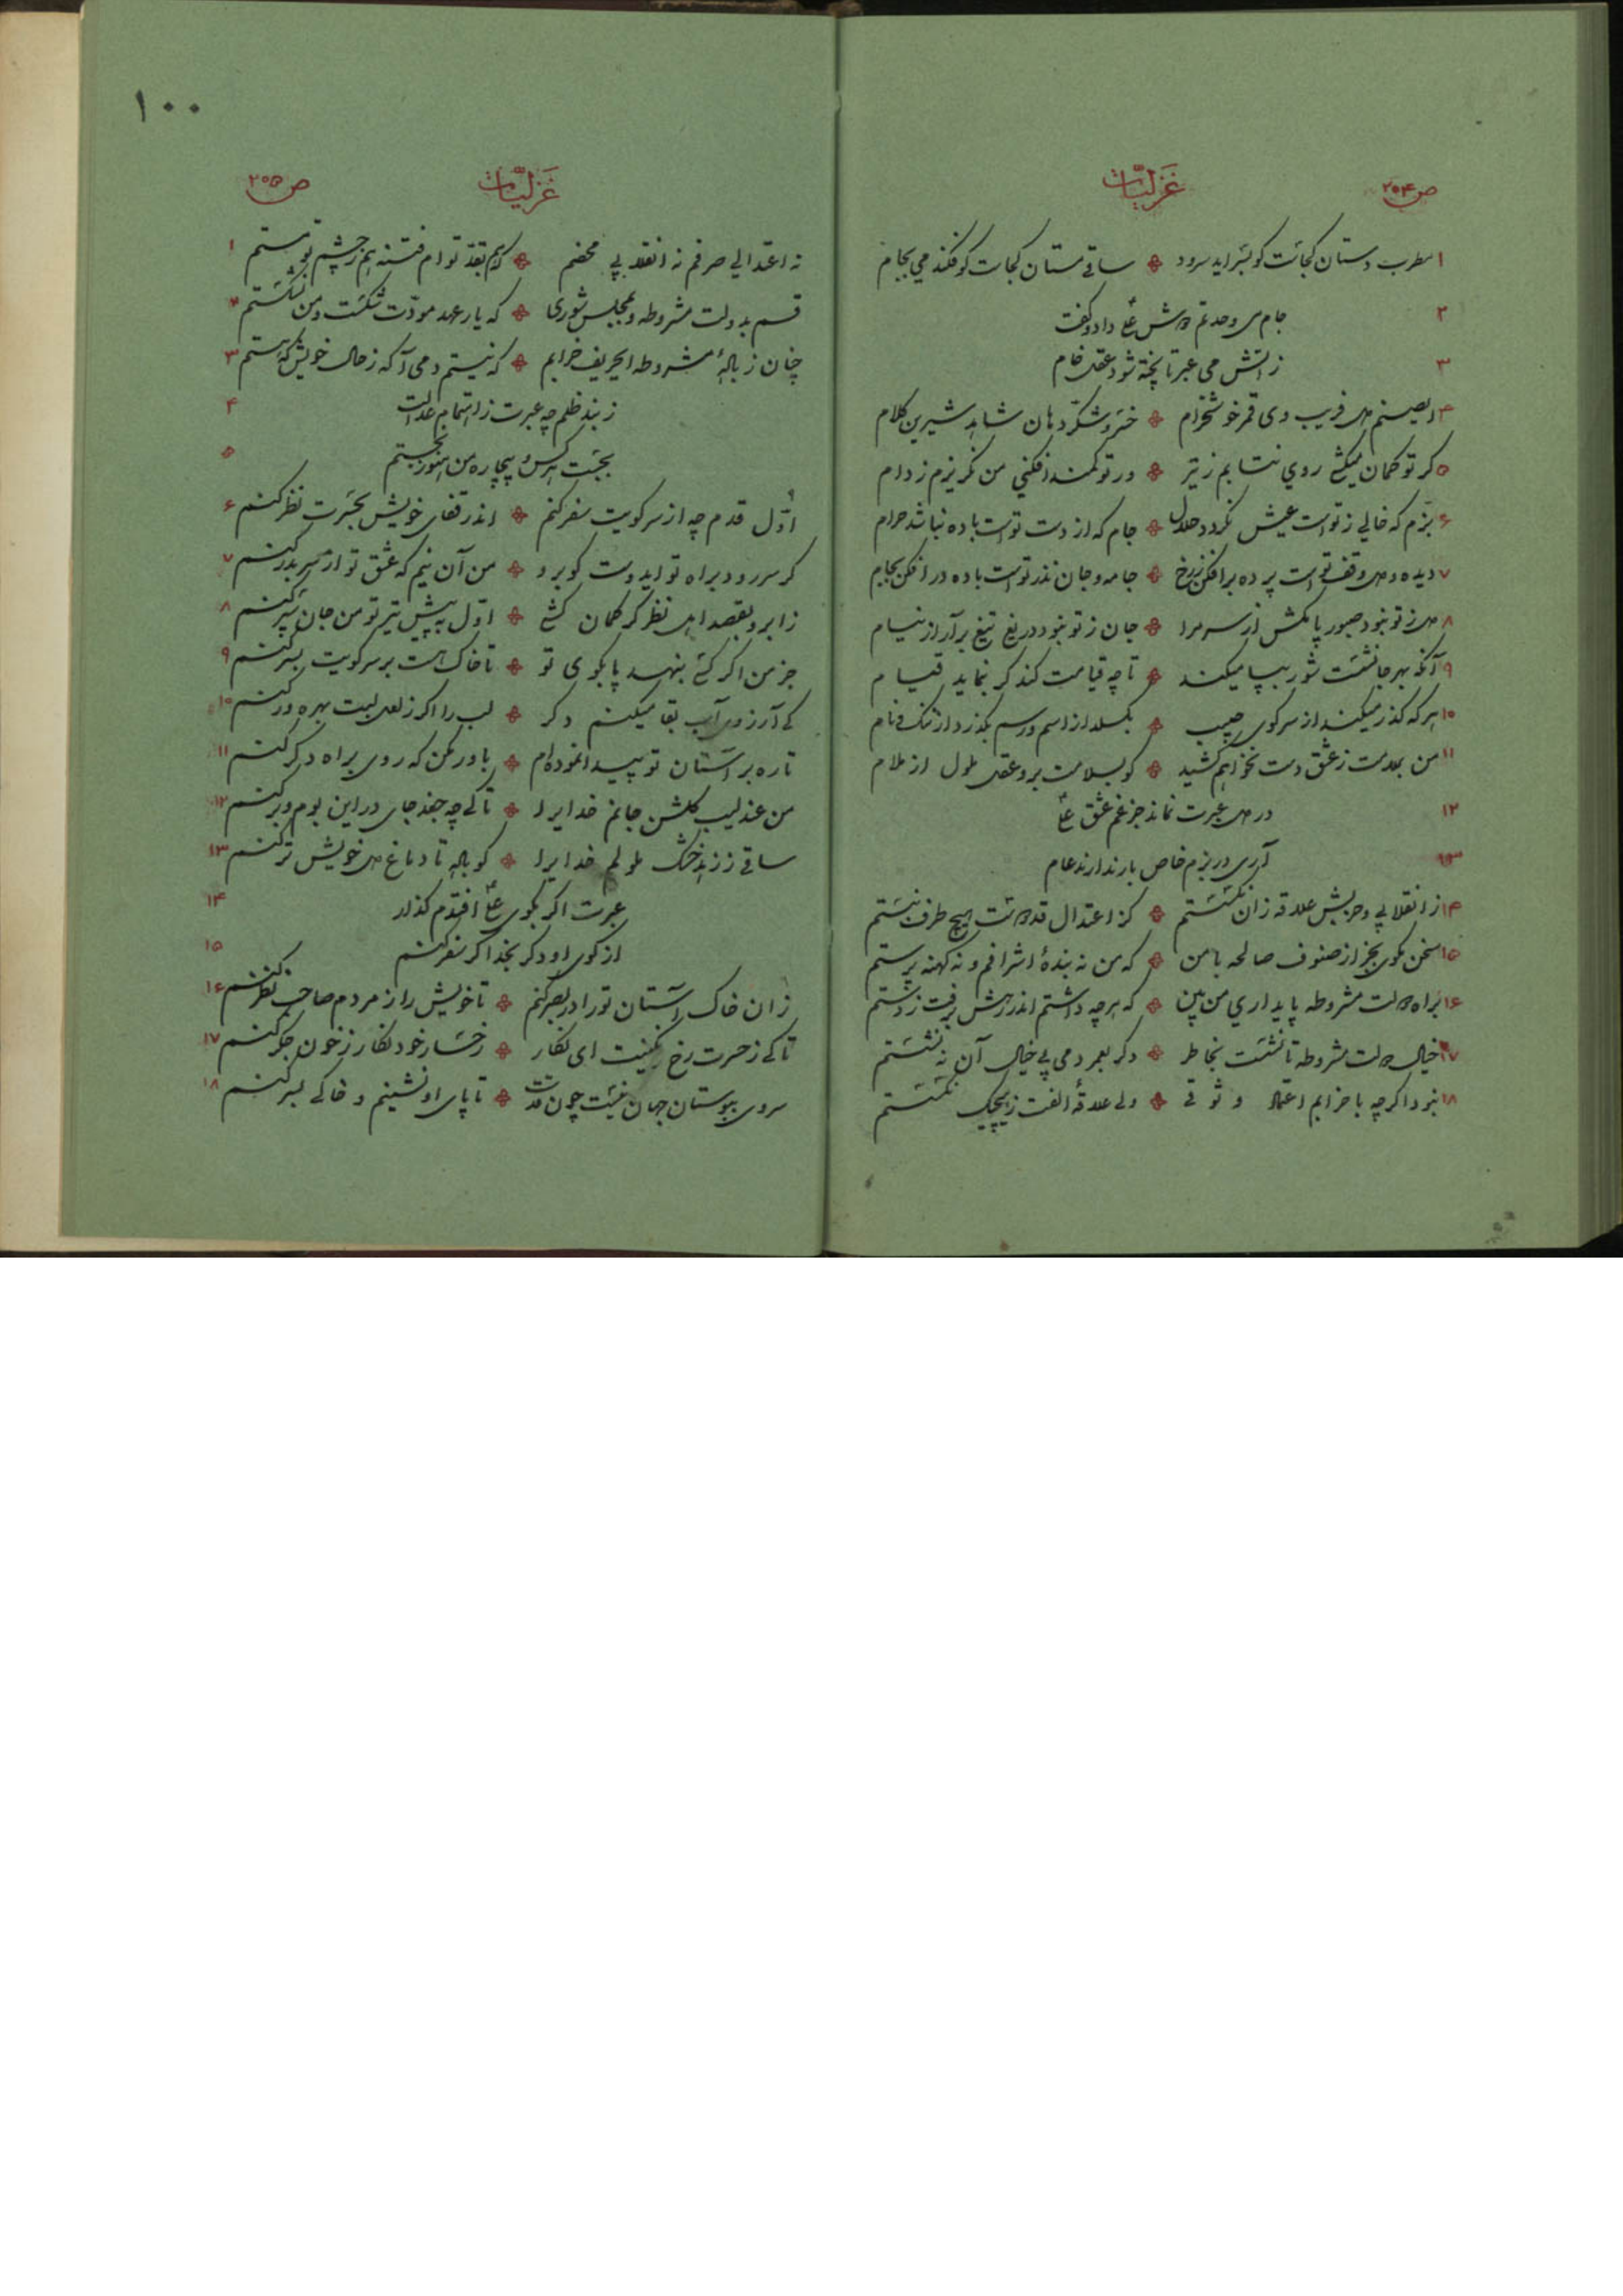 ص ۲۵۴
غزلیات
۱ مطرب دستان کجاست کو بسراید سرود ساقی مستان کجاست کو فکند می بجام
۲ جام می وحدتم دوش علی داد و گفت
۳ زآتش می عبرتا پخته شود عقل خام
۴ ایصنم دل فریب وی قمر خوشخرام خسرو شکّر دهان شاهد شیرین کلام
۵ کر تو کمان میکشی روی نتابم ز تیر ور تو کمند افکنی من نکریزم ز دام
۶ بزم که خالی ز تو است عیش نکردد حلال جام که از دست تو است باده نباشد حرام
۷ دیده و دل وقف تو است پرده برافکن ز رخ جامه و جان نذر تو است باده درافکن بجام
۸ دل ز تو نبود صبور پا مکش از سر مرا جان ز تو نبود دریغ تیغ برآر از نیام
۹ آنکه بهر جا نشست شور بپا میکند تا چه قیامت کند کر بنماید قیام
۱۰ هر که کذر میکند از سر کوی حبیب بکسلد از اسم و رسم بکذرد از ننک و نام
۱۱ من بملامت ز عشق دست نخواهم کشید کو بسلامت برو عقل ملول از ملام
۱۲ در دل عبرت نماند جز غم عشق علی
۱۳ آری در بزم خاص بار ندارند عام
۱۴ ز انقلابی و حزبش علاقه زان نکسستم کز اعتدال قد دوست هیچ طرف نبستم
۱۵ سخن مکوی بجز از صنوف صالحه با من که من نه بندهٔ اشرافم و نه کهنه پرستم
۱۶ براه دولت مشروطه پایداری من بین که هر چه داشتم اندر رهش برفت ز دستم
۱۷ خیال دولت مشروطه تا نشست بخاطر دکر بعمر دمی بی خیال آن ننشستم
۱۸ نبود اکر چه با حزابم اعتماد و ثوقی ولی علاقهٔ الفت ز هیچیک نکسستم
۱۰۰
ص ۲۵۵
غزلیات
نه اعتدالی صرفم نه انقلابی محضم که هم بقدّ توام فتنه هم ز چشم تو مستم ۱
قسم بدولت مشروطه و بمجلس شوری که یار عهد مودّت شکست و من نشکستم ۲
چنان ز بادهٔ مشروطه ایحریف خرابم که نیستم دمی آکه ز حال خویش که هستم ۳
ز بند ظلم چه عبرت ز اهتمام عدالت ۴
بجست هر کس و بیچاره من هنوز نجستم ۵
اوّل قدم چه از سر کویت سفر کنم اندر قفای خویش بحسرت نظر کنم ۶
کر سر رود براه تو ایدوست کو برو من آن نیم که عشق تو از سر بدر کنم ۷
ز ابرو بقصد اهل نظر کر کمان کشی اوّل به پیش تیر تو من جان سپر کنم ۸
جز من اکر کسی بنهد پا بکوی تو تا خاک هست بر سر کویت بسر کنم ۹
کی آرزوی آب بقا میکنم دکر لب را اکر ز لعل لبت بهره ور کنم ۱۰
تا ره بر آستان تو پیدا نموده‌ام باور مکن که روی براه دکر کنم ۱۱
من عندلیب کلشن جانم خدایرا تا کی چه جغد جای در این بوم و بر کنم ۱۲
ساقی ز زهد خشک ملولم خدایرا کو باده تا دماغ دل خویش تر کنم ۱۳
عبرت اکر بکوی علی افتدم کذار ۱۴
از کوی او دکر بخدا اکر سفر کنم ۱۵
زان خاک آستان تو را در بصر کنم تا خویش را ز مردم صاحب نظر کنم ۱۶
تا کی ز حسرت رخ رنکینت ای نکار رخسار خود نکار ز خون جکر کنم ۱۷
سروی ببوستان جهان نیست چون قدت تا پای او نشینم و خاکی بسر کنم ۱۸